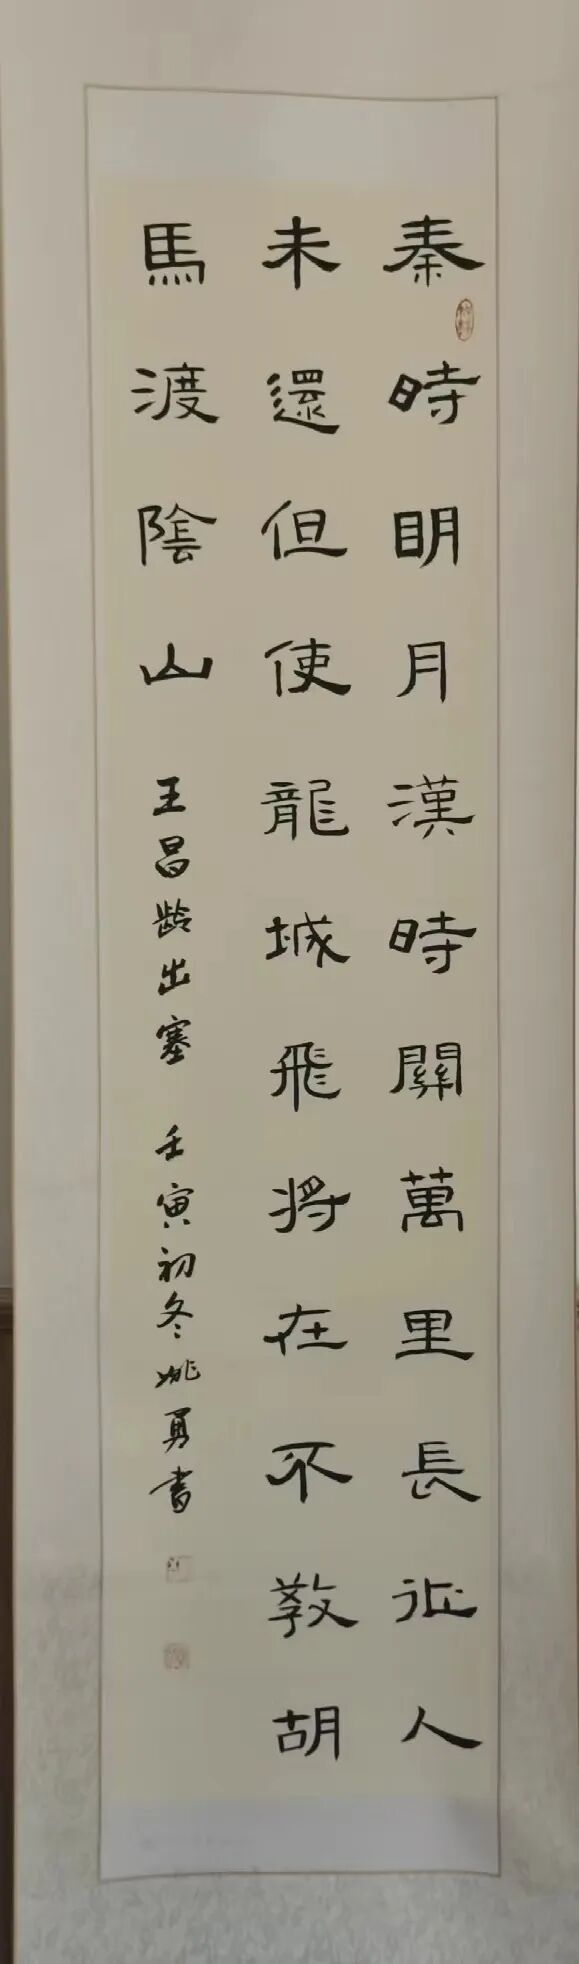 秦時明月漢時關萬里長征人
未還但使龍城飛將在不敎胡
馬渡陰山
王昌龄出塞 壬寅初冬姚勇書